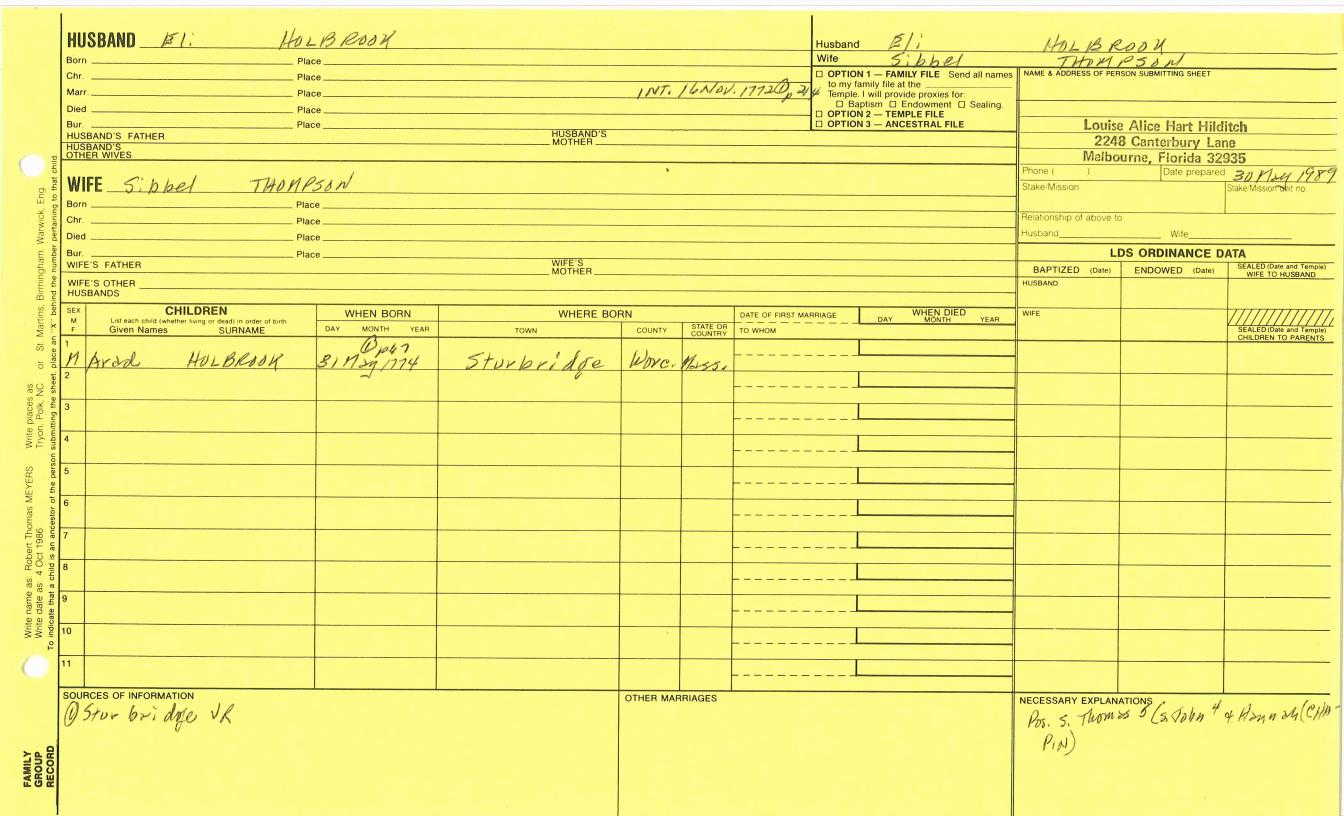 HUSBAND Eli HOLBROOK
Born Place
Chr. Place
Marr. Place INT. 16 Nov. 1772 ① p 214
Died Place
Bur. Place
HUSBAND'S FATHER HUSBAND'S MOTHER
HUSBAND'S OTHER WIVES
Husband Eli HOLBROOK
Wife Sibbel THOMPSON
☐ OPTION 1 — FAMILY FILE Send all names
to my family file at the
Temple. I will provide proxies for:
☐ Baptism ☐ Endowment ☐ Sealing.
☐ OPTION 2 — TEMPLE FILE
☐ OPTION 3 — ANCESTRAL FILE
NAME & ADDRESS OF PERSON SUBMITTING SHEET
Louise Alice Hart Hilditch
2248 Canterbury Lane
Melbourne, Florida 32935
Phone ( ) Date prepared 30 May 1989
Stake-Mission Stake/Mission unit no.
Relationship of above to
Husband Wife
WIFE Sibbel THOMPSON
Born Place
Chr. Place
Died Place
Bur. Place
WIFE'S FATHER WIFE'S MOTHER
WIFE'S OTHER HUSBANDS
LDS ORDINANCE DATA
BAPTIZED (Date) ENDOWED (Date) SEALED (Date and Temple) WIFE TO HUSBAND
HUSBAND
WIFE
SEALED (Date and Temple) CHILDREN TO PARENTS
SEX M F
CHILDREN
List each child (whether living or dead) in order of birth
Given Names SURNAME
WHEN BORN
DAY MONTH YEAR
WHERE BORN
TOWN COUNTY STATE OR COUNTRY
DATE OF FIRST MARRIAGE
TO WHOM
WHEN DIED
DAY MONTH YEAR
1 ① p67
M Arad HOLBROOK 31 May 1774 Sturbridge Worc. Mass.
2
3
4
5
6
7
8
9
10
11
SOURCES OF INFORMATION
① Sturbridge VR
OTHER MARRIAGES
NECESSARY EXPLANATIONS
Pos. s. Thomas 5 (s. John 4 & Hannah (CHA-
PIN)
Write name as: Robert Thomas MEYERS Write places as: Tryon, Polk, NC or St. Martins, Birmingham, Warwick, Eng.
Write date as: 4 Oct 1986
To indicate that a child is an ancestor of the person submitting the sheet, place an "X" behind the number pertaining to that child.
FAMILY
GROUP
RECORD